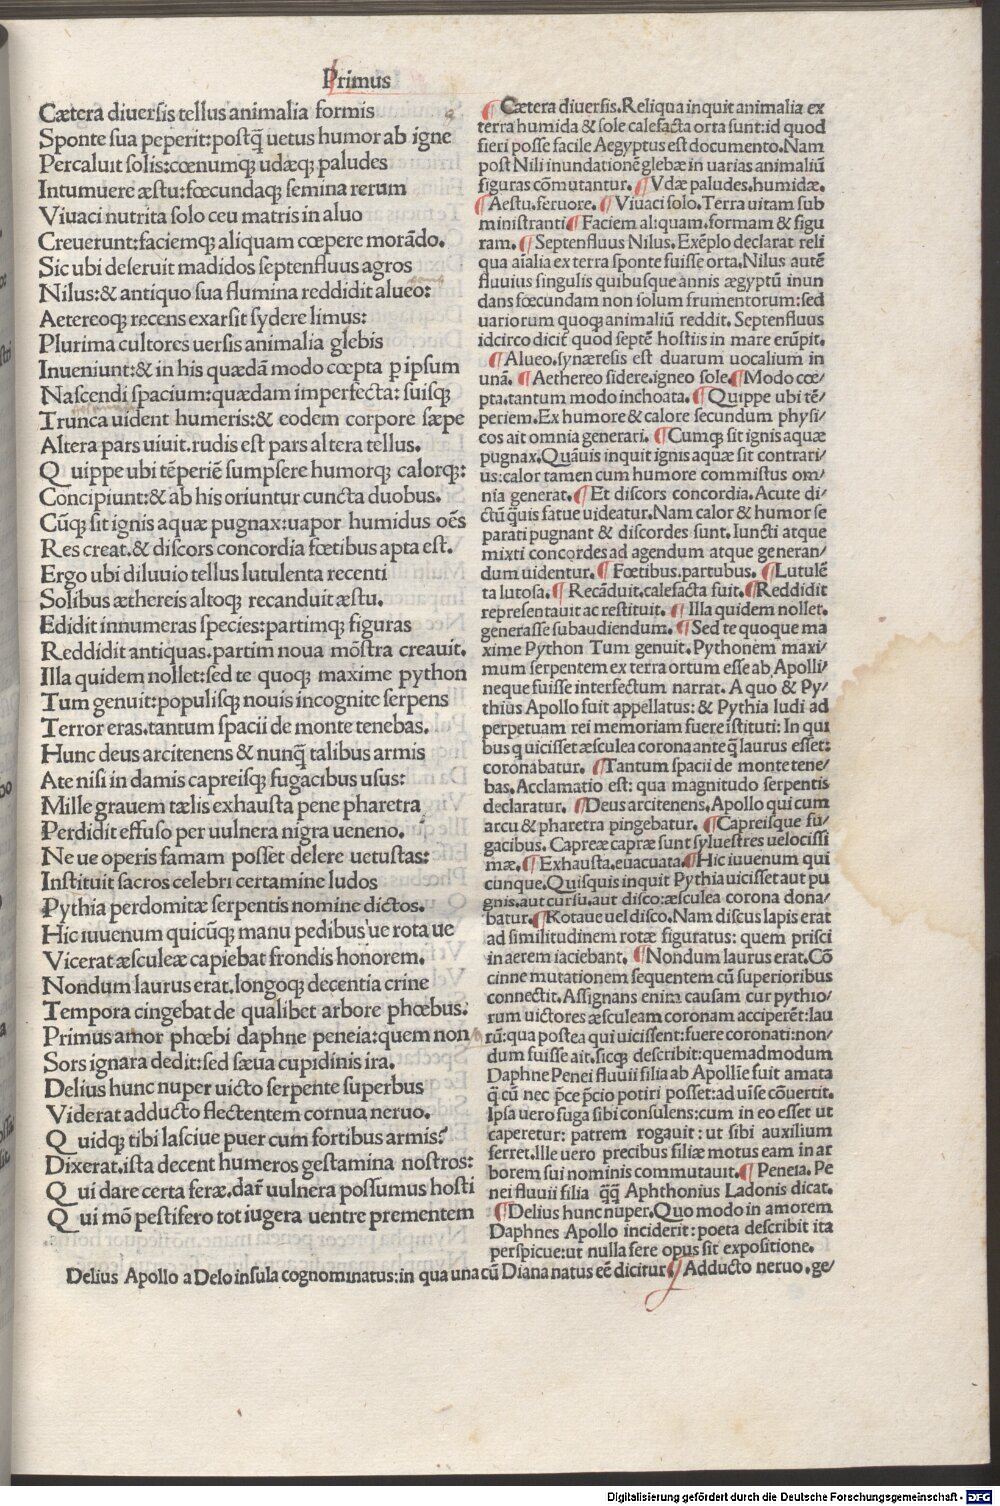 Primus
Cætera diuersis tellus animalia formis
Sponte sua peperit:postq̃ uetus humor ab igne
Percaluit solis:cœnumqꝫ udæqꝫ paludes
Intumuere æstu:fœcundaqꝫ semina rerum
Viuaci nutrita solo ceu matris in aluo
Creuerunt:faciemqꝫ aliquam cœpere morãdo.
Sic ubi deseruit madidos septenfluus agros
Nilus:& antiquo sua flumina reddidit alueo:
Aetereoqꝫ recens exarsit sydere limus:
Plurima cultores uersis animalia glebis
Inueniunt:& in his quædã modo cœpta p ipsum
Nascendi spacium:quædam imperfecta: suisqꝫ
Trunca uident humeris:& eodem corpore sæpe
Altera pars uiuit.rudis est pars altera tellus.
Q uippe ubi tẽperiẽ sumpsere humorqꝫ calorqꝫ:
Concipiunt:& ab his oriuntur cuncta duobus.
Cũqꝫ sit ignis aquæ pugnax:uapor humidus oẽs
Res creat.& discors concordia fœtibus apta est.
Ergo ubi diluuio tellus lutulenta recenti
Solibus æthereis altoqꝫ recanduit æstu.
Edidit innumeras species:partimqꝫ figuras
Reddidit antiquas.partim noua mõstra creauit.
Illa quidem nollet:sed te quoqꝫ maxime python
Tum genuit:populisqꝫ nouis incognite serpens
Terror eras.tantum spacii de monte tenebas.
Hunc deus arcitenens & nunq̃ talibus armis
Ate nisi in damis capreisqꝫ fugacibus usus:
Mille grauem tælis exhausta pene pharetra
Perdidit effuso per uulnera nigra ueneno.
Ne ue operis famam posset delere uetustas:
Instituit sacros celebri certamine ludos
Pythia perdomitæ serpentis nomine dictos.
Hic iuuenum quicũqꝫ manu pedibus ue rota ue
Vicerat æsculeæ capiebat frondis honorem.
Nondum laurus erat.longoqꝫ decentia crine
Tempora cingebat de qualibet arbore phœbus.
Primus amor phœbi daphne peneia:quem non
Sors ignara dedit:sed sæua cupidinis ira.
Delius hunc nuper uicto serpente superbus
Viderat adducto flectentem cornua neruo.
Q uidqꝫ tibi lasciue puer cum fortibus armis?
Dixerat.ista decent humeros gestamina nostros:
Q ui dare certa feræ.dar̃ uulnera possumus hosti
Q ui mõ pestifero tot iugera uentre prementem
¶ Cætera diuersis.Reliqua inquit animalia ex
terra humida & sole calefacta orta sunt:id quod
fieri posse facile Aegyptus est documento.Nam
post Nili inundationẽ glebæ in uarias animaliũ
figuras cõmutantur. ¶ Vdæ paludes.humidæ.
¶ Aestu.feruore. ¶ Viuaci solo.Terra uitam sub
ministranti ¶ Faciem aliquam.formam & figu
ram. ¶ Septenfluus Nilus. Exẽplo declarat reli
qua aĩalia ex terra sponte fuisse orta.Nilus autẽ
fluuius singulis quibusque annis ægyptũ inun
dans fœcundam non solum frumentorum:sed
uariorum quoqꝫ animaliũ reddit. Septenfluus
idcirco dicit̃ quod septẽ hostiis in mare erũpit.
¶ Alueo.synæresis est duarum uocalium in
unã. ¶ Aethereo sidere.igneo sole. ¶ Modo cœ/
pta.tantum modo inchoata. ¶ Quippe ubi tẽ/
periem.Ex humore & calore secundum physi/
cos ait omnia generari. ¶ Cumqꝫ sit ignis aquæ
pugnax.Quãuis inquit ignis aquæ sit contrari/
us:calor tamen cum humore commistus om/
nia generat. ¶ Et discors concordia. Acute di/
ctũ q̃uis fatue uideatur.Nam calor & humor se
parati pugnant & discordes sunt. Iuncti atque
mixti concordes ad agendum atque generan/
dum uidentur. ¶ Fœtibus.partubus. ¶ Lutulẽ
ta lutosa. ¶ Recãduit.calefacta fuit. ¶ Reddidit
representauit ac restituit. ¶ Illa quidem nollet.
generasse subaudiendum. ¶ Sed te quoque ma
xime Python Tum genuit. Pythonem maxi/
mum serpentem ex terra ortum esse ab Apolli/
neque fuisse interfectum narrat. A quo & Py/
thius Apollo fuit appellatus: & Pythia ludi ad
perpetuam rei memoriam fuere istituti: In qui
bus q uicisset æsculea corona ante q̃ laurus esset:
coronabatur. ¶ Tantum spacii de monte tene/
bas. Acclamatio est: qua magnitudo serpentis
declaratur. ¶ Deus arcitenens.Apollo qui cum
arcu & pharetra pingebatur. ¶ Capreisque fu/
gacibus. Capreæ capræ sunt syluestres uelocissi
mæ. ¶ Exhausta.euacuata. ¶ Hic iuuenum qui
cunque.Quisquis inquit Pythia uicisset aut pu
gnis.aut cursu.aut disco:æsculea corona dona/
batur. ¶ Rotaue uel disco.Nam discus lapis erat
ad similitudinem rotæ figuratus: quem prisci
in aerem iaciebant. ¶ Nondum laurus erat.Cõ
cinne mutationem sequentem cũ superioribus
connectit.Assignans enim causam cur pythio/
rum uictores æsculeam coronam acciperẽt:lau
rũ:qua postea qui uicissent:fuere coronati:non/
dum fuisse ait.sicqꝫ describit:quemadmodum
Daphne Penei fluuii filia ab Apollĩe fuit amata
q̃ cũ nec p̃ce p̃cio potiri posset:ad uĩ se cõuertit.
Ipsa uero fuga sibi consulens:cum in eo esset ut
caperetur: patrem rogauit : ut sibi auxilium
ferret.Ille uero precibus filiæ motus eam in ar
borem sui nominis commutauit. ¶ Peneia. Pe
nei fluuii filia q̃q̃ Aphthonius Ladonis dicat.
¶ Delius hunc nuper.Quo modo in amorem
Daphnes Apollo inciderit: poeta describit ita
perspicue:ut nulla fere opus sit expositione.
Delius Apollo a Delo insula cognominatus:in qua una cũ Diana natus eẽ dicitur ¶ Adducto neruo.ge/
Digitalisierung gefördert durch die Deutsche Forschungsgemeinschaft - DFG